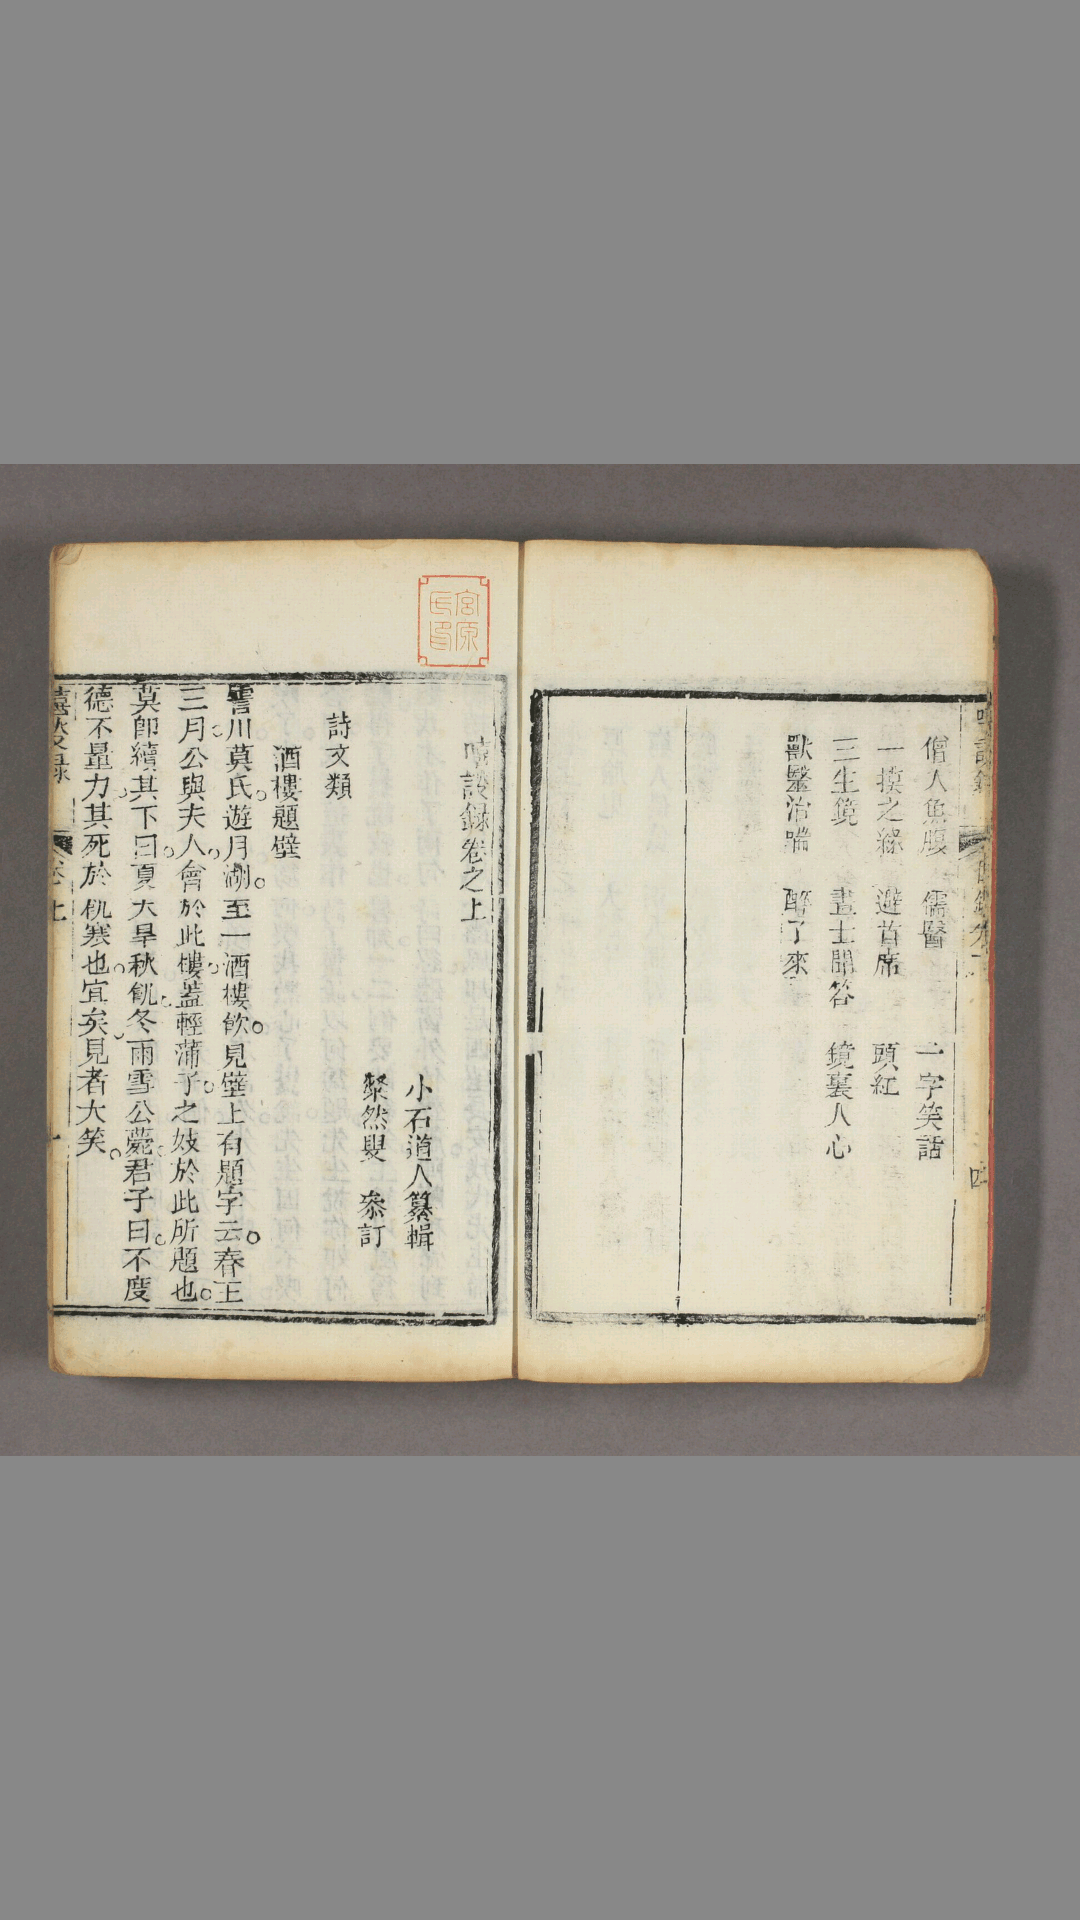 僧人魚腹　儒醫　一字笑話
一摸之緣　避首席　頭紅
三生鏡　晝士問答　鏡裏人心
獸醫治喘　醉了來
四
宮原氏印
嘻談錄卷之上
小石道人纂輯
粲然叟　叅訂
詩文類
酒樓題壁
霅川莫氏遊月湖至一酒樓飲見壁上有題字云春王
三月公與夫人會於此樓蓋輕薄子之妓於此所題也
莫卽續其下曰夏大旱秋飢冬雨雪公薨君子曰不度
德不量力其死於飢寒也宜矣見者大笑
卷上